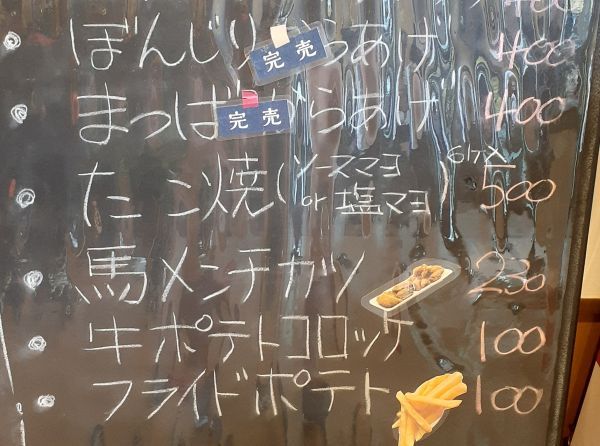 ぼんじりからあげ 400
完売
まつば からあげ 400
完売
たこ焼(ソースマヨ or 塩マヨ) 6ケ入 500
馬メンチカツ 230
牛ポテトコロッケ 100
フライドポテト 100